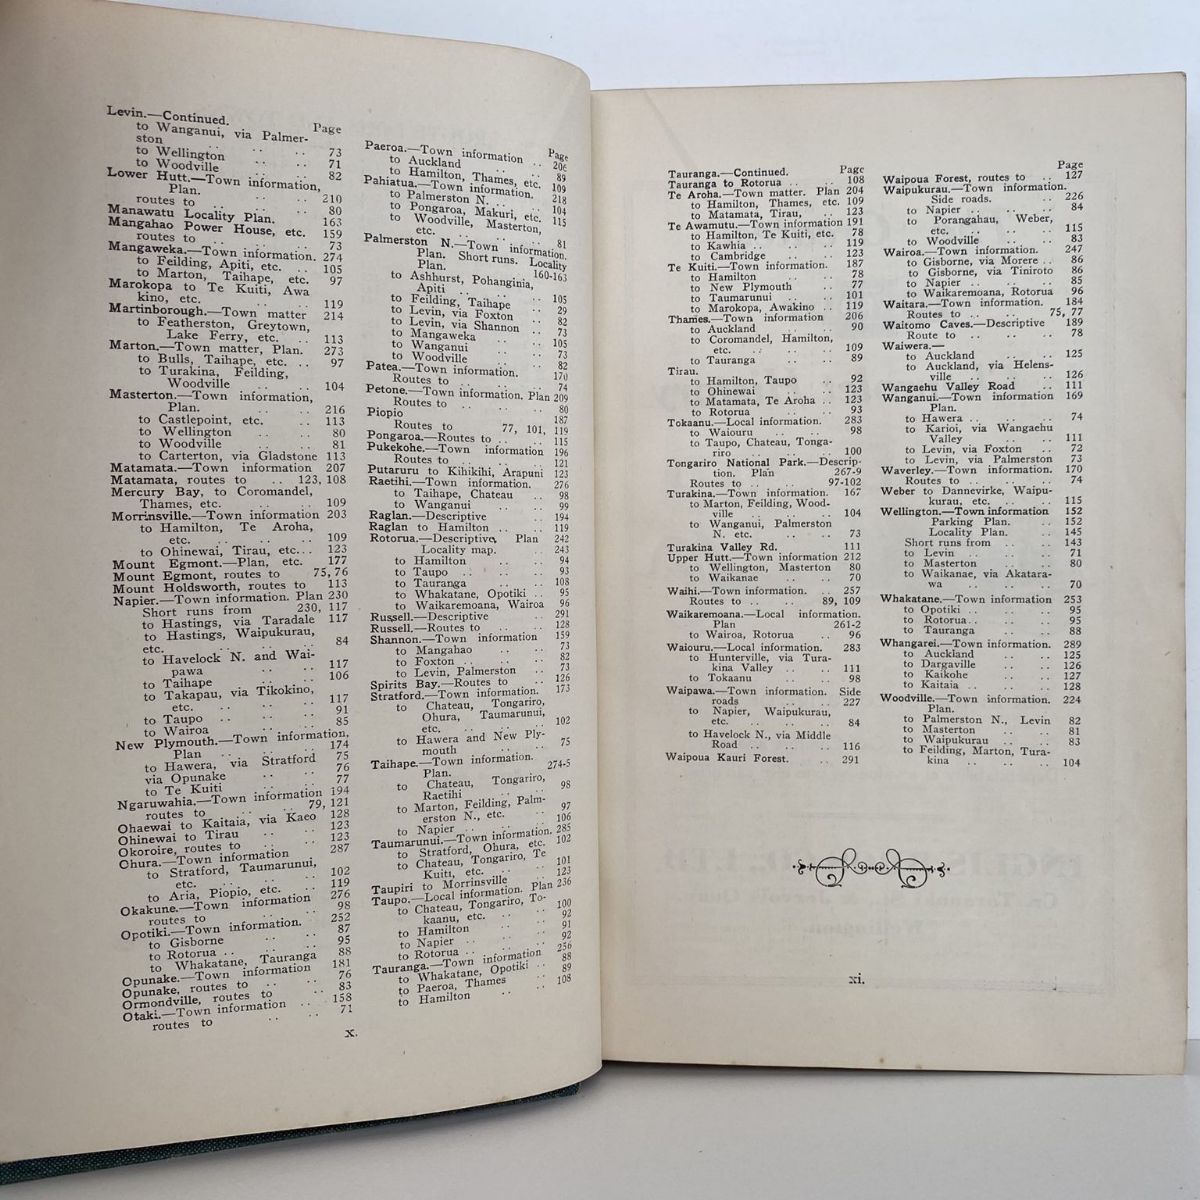 Levin.—Continued.
Page
to Wanganui, via Palmer-
ston .. .. .. 73
to Wellington .. .. 71
to Woodville .. .. 82
Lower Hutt.—Town information,
Plan. .. .. 210
routes to .. .. .. 80
Manawatu Locality Plan. 163
Mangahao Power House, etc. 159
routes to .. .. .. 73
Mangaweka.—Town information. 274
to Feilding, Apiti, etc. .. 105
to Marton, Taihape, etc. 97
Marokopa to Te Kuiti, Awa
kino, etc. .. .. 119
Martinborough.—Town matter 214
to Featherston, Greytown,
Lake Ferry, etc. .. 113
Marton.—Town matter, Plan. 273
to Bulls, Taihape, etc. .. 97
to Turakina, Feilding,
Woodville .. .. 104
Masterton.—Town information,
Plan. .. .. 216
to Castlepoint, etc. .. 113
to Wellington .. .. 80
to Woodville .. .. 81
to Carterton, via Gladstone 113
Matamata.—Town information 207
Matamata, routes to .. 123, 108
Mercury Bay, to Coromandel,
Thames, etc. .. .. 109
Morrinsville.—Town information 203
to Hamilton, Te Aroha,
etc. .. .. .. 109
to Ohinewai, Tirau, etc... 123
Mount Egmont.—Plan, etc. 177
Mount Egmont, routes to 75, 76
Mount Holdsworth, routes to 113
Napier.—Town information. Plan 230
Short runs from 230, 117
to Hastings, via Taradale 117
to Hastings, Waipukurau,
etc. .. .. .. 84
to Havelock N. and Wai-
pawa .. .. 117
to Taihape .. .. 106
to Takapau, via Tikokino,
etc. .. .. .. 117
to Taupo .. .. .. 91
to Wairoa .. .. .. 85
New Plymouth.—Town information,
Plan .. .. .. 174
to Hawera, via Stratford 75
via Opunake .. .. 76
to Te Kuiti .. .. 77
Ngaruwahia.—Town information 194
routes to .. .. 79, 121
Ohaewai to Kaitaia, via Kaeo 128
Ohinewai to Tirau .. .. 123
Okoroire, routes to .. .. 123
Ohura.—Town information 287
to Stratford, Taumarunui,
etc. .. .. .. 102
to Aria, Piopio, etc. .. 119
Okakune.—Town information 276
routes to .. .. .. 98
Opotiki.—Town information. 252
to Gisborne .. .. 87
to Rotorua .. .. .. 95
to Whakatane, Tauranga 88
Opunake.—Town information 181
Opunake, routes to .. .. 76
Ormondville, routes to .. 83
Otaki.—Town information .. 158
routes to .. .. .. 71
x.
Page
Paeroa.—Town information .. 206
to Auckland .. .. 89
to Hamilton, Thames, etc. 109
Pahiatua.—Town information. 218
to Palmerston N. .. .. 104
to Pongaroa, Makuri, etc. 115
to Woodville, Masterton,
etc. .. .. .. 81
Palmerston N.—Town information.
Plan. Short runs. Locality
Plan. 160-163
to Ashhurst, Pohanginia,
Apiti .. .. .. 105
to Feilding, Taihape .. 29
to Levin, via Foxton .. 82
to Levin, via Shannon .. 73
to Mangaweka .. .. 105
to Wanganui .. .. 73
to Woodville .. .. 82
Patea.—Town information. 170
Routes to .. .. .. 74
Petone.—Town information. Plan 209
Routes to .. .. .. 80
Piopio 187
Routes to 77, 101, 119
Pongaroa.—Routes to .. .. 115
Pukekohe.—Town information 196
Routes to .. .. .. 121
Putaruru to Kihikihi, Arapuni 123
Raetihi.—Town information. 276
to Taihape, Chateau .. 98
to Wanganui .. .. 99
Raglan.—Descriptive .. 194
Raglan to Hamilton .. .. 119
Rotorua.—Descriptive, Plan 242
Locality map. .. 243
to Hamilton .. .. 94
to Taupo .. .. .. 93
to Tauranga .. .. 108
to Whakatane, Opotiki .. 95
to Waikaremoana, Wairoa 96
Russell.—Descriptive .. 291
Russell.—Routes to .. .. 128
Shannon.—Town information 159
to Mangahao .. .. 73
to Foxton .. .. .. 82
to Levin, Palmerston .. 73
Spirits Bay.—Routes to .. 126
Stratford.—Town information. 173
to Chateau, Tongariro,
Ohura, Taumarunui,
etc. .. .. .. 102
to Hawera and New Ply-
mouth .. .. 75
Taihape.—Town information.
Plan. 274-5
to Chateau, Tongariro,
Raetihi .. .. 98
to Marton, Feilding, Palm-
erston N., etc. .. 97
to Napier .. .. .. 106
Taumarunui.—Town information. 285
to Stratford, Ohura, etc. 102
to Chateau, Tongariro, Te
Kuiti, etc. .. .. 101
Taupiri to Morrinsville .. 123
Taupo.—Local information. Plan 236
to Chateau, Tongariro, To-
kaanu, etc. .. .. 100
to Hamilton .. .. 92
to Napier .. .. .. 91
to Rotorua .. .. .. 92
Tauranga.—Town information 256
to Whakatane, Opotiki .. 88
to Paeroa, Thames .. 89
to Hamilton .. .. 108
Page
Tauranga.—Continued.
Tauranga to Rotorua .. .. 108
Te Aroha.—Town matter. Plan 204
to Hamilton, Thames, etc. 109
to Matamata, Tirau, .. 123
Te Awamutu.—Town information 191
to Hamilton, Te Kuiti, etc. 78
to Kawhia .. .. 119
to Cambridge .. .. 123
Te Kuiti.—Town information. 187
to Hamilton .. .. 78
to New Plymouth .. 77
to Taumarunui .. .. 101
to Marokopa, Awakino .. 119
Thames.—Town information 206
to Auckland .. .. 90
to Coromandel, Hamilton,
etc. .. .. .. 109
to Tauranga .. .. 89
Tirau.
to Hamilton, Taupo .. 92
to Ohinewai .. .. 123
to Matamata, Te Aroha .. 123
to Rotorua .. .. .. 93
Tokaanu.—Local information. 283
to Waiouru .. .. 98
to Taupo, Chateau, Tonga-
riro .. .. .. 100
Tongariro National Park.—Descrip-
tion. Plan 267-9
Routes to .. .. .. 97-102
Turakina.—Town information. 167
to Marton, Feilding, Wood-
ville .. .. .. 104
to Wanganui, Palmerston
N. etc. .. .. 73
Turakina Valley Rd. 111
Upper Hutt.—Town information 212
to Wellington, Masterton 80
to Waikanae .. .. 70
Waihi.—Town information. .. 257
Routes to .. .. .. 89, 109
Waikaremoana.—Local information.
Plan 261-2
to Wairoa, Rotorua .. 96
Waiouru.—Local information. 283
to Hunterville, via Tura-
kina Valley .. .. 111
to Tokaanu .. .. 98
Waipawa.—Town information. Side
roads .. .. 227
to Napier, Waipukurau,
etc. .. .. .. 84
to Havelock N., via Middle
Road .. .. .. 116
Waipoua Kauri Forest. .. 291
Page
Waipoua Forest, routes to .. 127
Waipukurau.—Town information.
Side roads. .. 226
to Napier .. .. .. 84
to Porangahau, Weber,
etc. .. .. .. 115
to Woodville .. .. 83
Wairoa.—Town information. 247
to Gisborne, via Morere .. 86
to Gisborne, via Tiniroto 86
to Napier .. .. .. 85
to Waikaremoana, Rotorua 96
Waitara.—Town information. 184
Routes to .. .. 75, 77
Waitomo Caves.—Descriptive 189
Route to .. .. .. 78
Waiwera.—
to Auckland .. .. 125
to Auckland, via Helens-
ville .. .. .. 126
Wangaehu Valley Road .. 111
Wanganui.—Town information 169
Plan.
to Hawera .. .. .. 74
to Karioi, via Wangaehu
Valley .. .. 111
to Levin, via Foxton .. 72
to Levin, via Palmerston 73
Waverley.—Town information. 170
Routes to .. .. .. 74
Weber to Dannevirke, Waipu-
kurau, etc. .. .. 115
Wellington.—Town information 152
Parking Plan. .. 152
Locality Plan. .. 145
Short runs from .. .. 143
to Levin .. .. .. 71
to Masterton .. .. 80
to Waikanae, via Akatara-
wa .. .. .. 70
Whakatane.—Town information 253
to Opotiki .. .. .. 95
to Rotorua.. .. .. 95
to Tauranga .. .. 88
Whangarei.—Town information. 289
to Auckland .. .. 125
to Dargaville .. .. 126
to Kaikohe .. .. 127
to Kaitaia .. .. .. 128
Woodville.—Town information. 224
Plan.
to Palmerston N., Levin 82
to Masterton .. .. 81
to Waipukurau .. .. 83
to Feilding, Marton, Tura-
kina .. .. .. 104
xi.